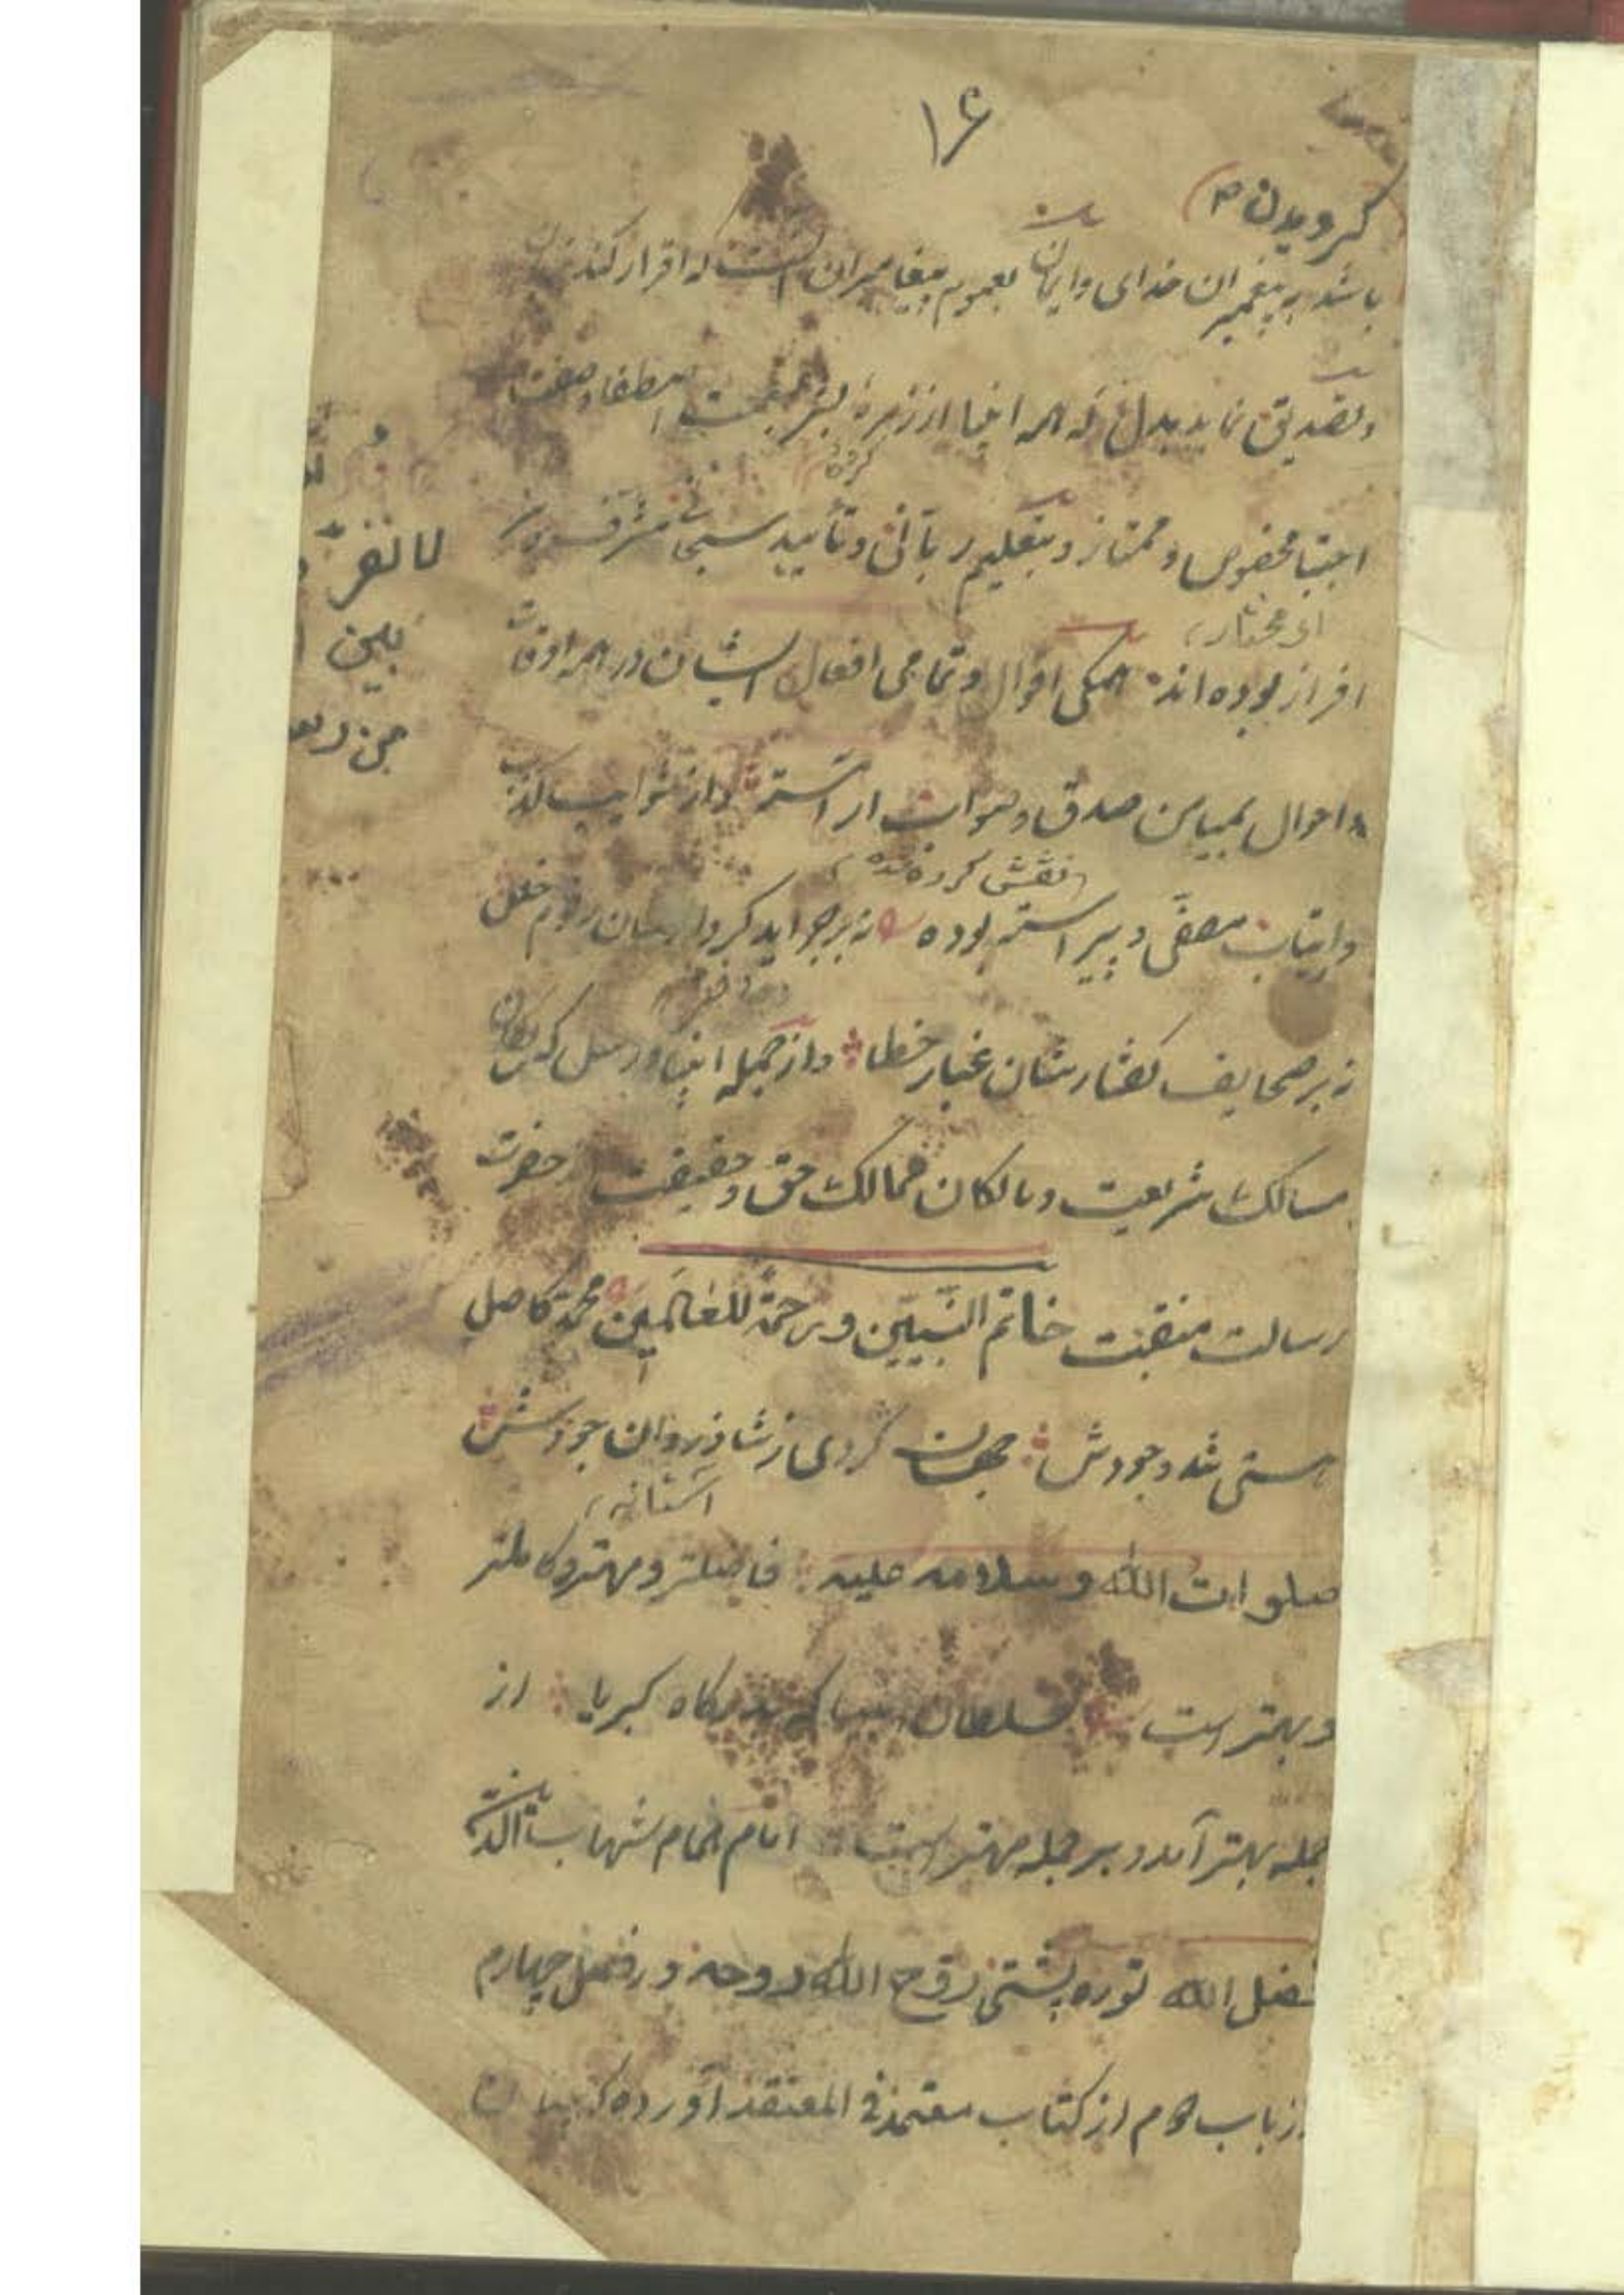 ۱۶
گرویدن
باشد به پیغمبران خدای و ایمان بعموم پیغامبران آنست که اقرار کند بزبان
و تصدیق نماید بدل که همه انبیا از زمره بشر اصطفا و صفت
گروه
اجتبا مخصوص و ممتاز و بتعلیم ربانی و تأیید سبحانی مشرف و سر
ای مختار
افراز بوده اند همگی اقوال و تمامی افعال ایشان در همه اوقات
و احوال بمیامن صدق و صواب آراسته و از شوایب کذب
نقش کرده شده
و ارتیاب مصفّی و پیراسته بوده نه بر جراید کردارشان رقوم خلل
نه بر صحایف گفتارشان غبار خطا و از جمله انبیا و رسل که
مسالک شریعت و مالکان ممالک حق و حقیقت حضرت
رسالت منقبت خاتم النّبیّین و رحمة للعالمین محمد کاصل
هستی شد وجودش جهان گردی ز شادروان جودش
آستانه
صلوات الله و سلامه علیه فاضلتر و مهتر و کاملتر
و بهتر است سلطان انبیا که بدرگاه کبریا از
جمله بهتر آمد و بر جمله مهتر است امام همام شهاب
فضل الله توره پشتی روّح الله روحه در فصل چهارم
از باب دوم از کتاب معتمد فی المعتقد آورده که
لا نفرّ
بین
من رسـ